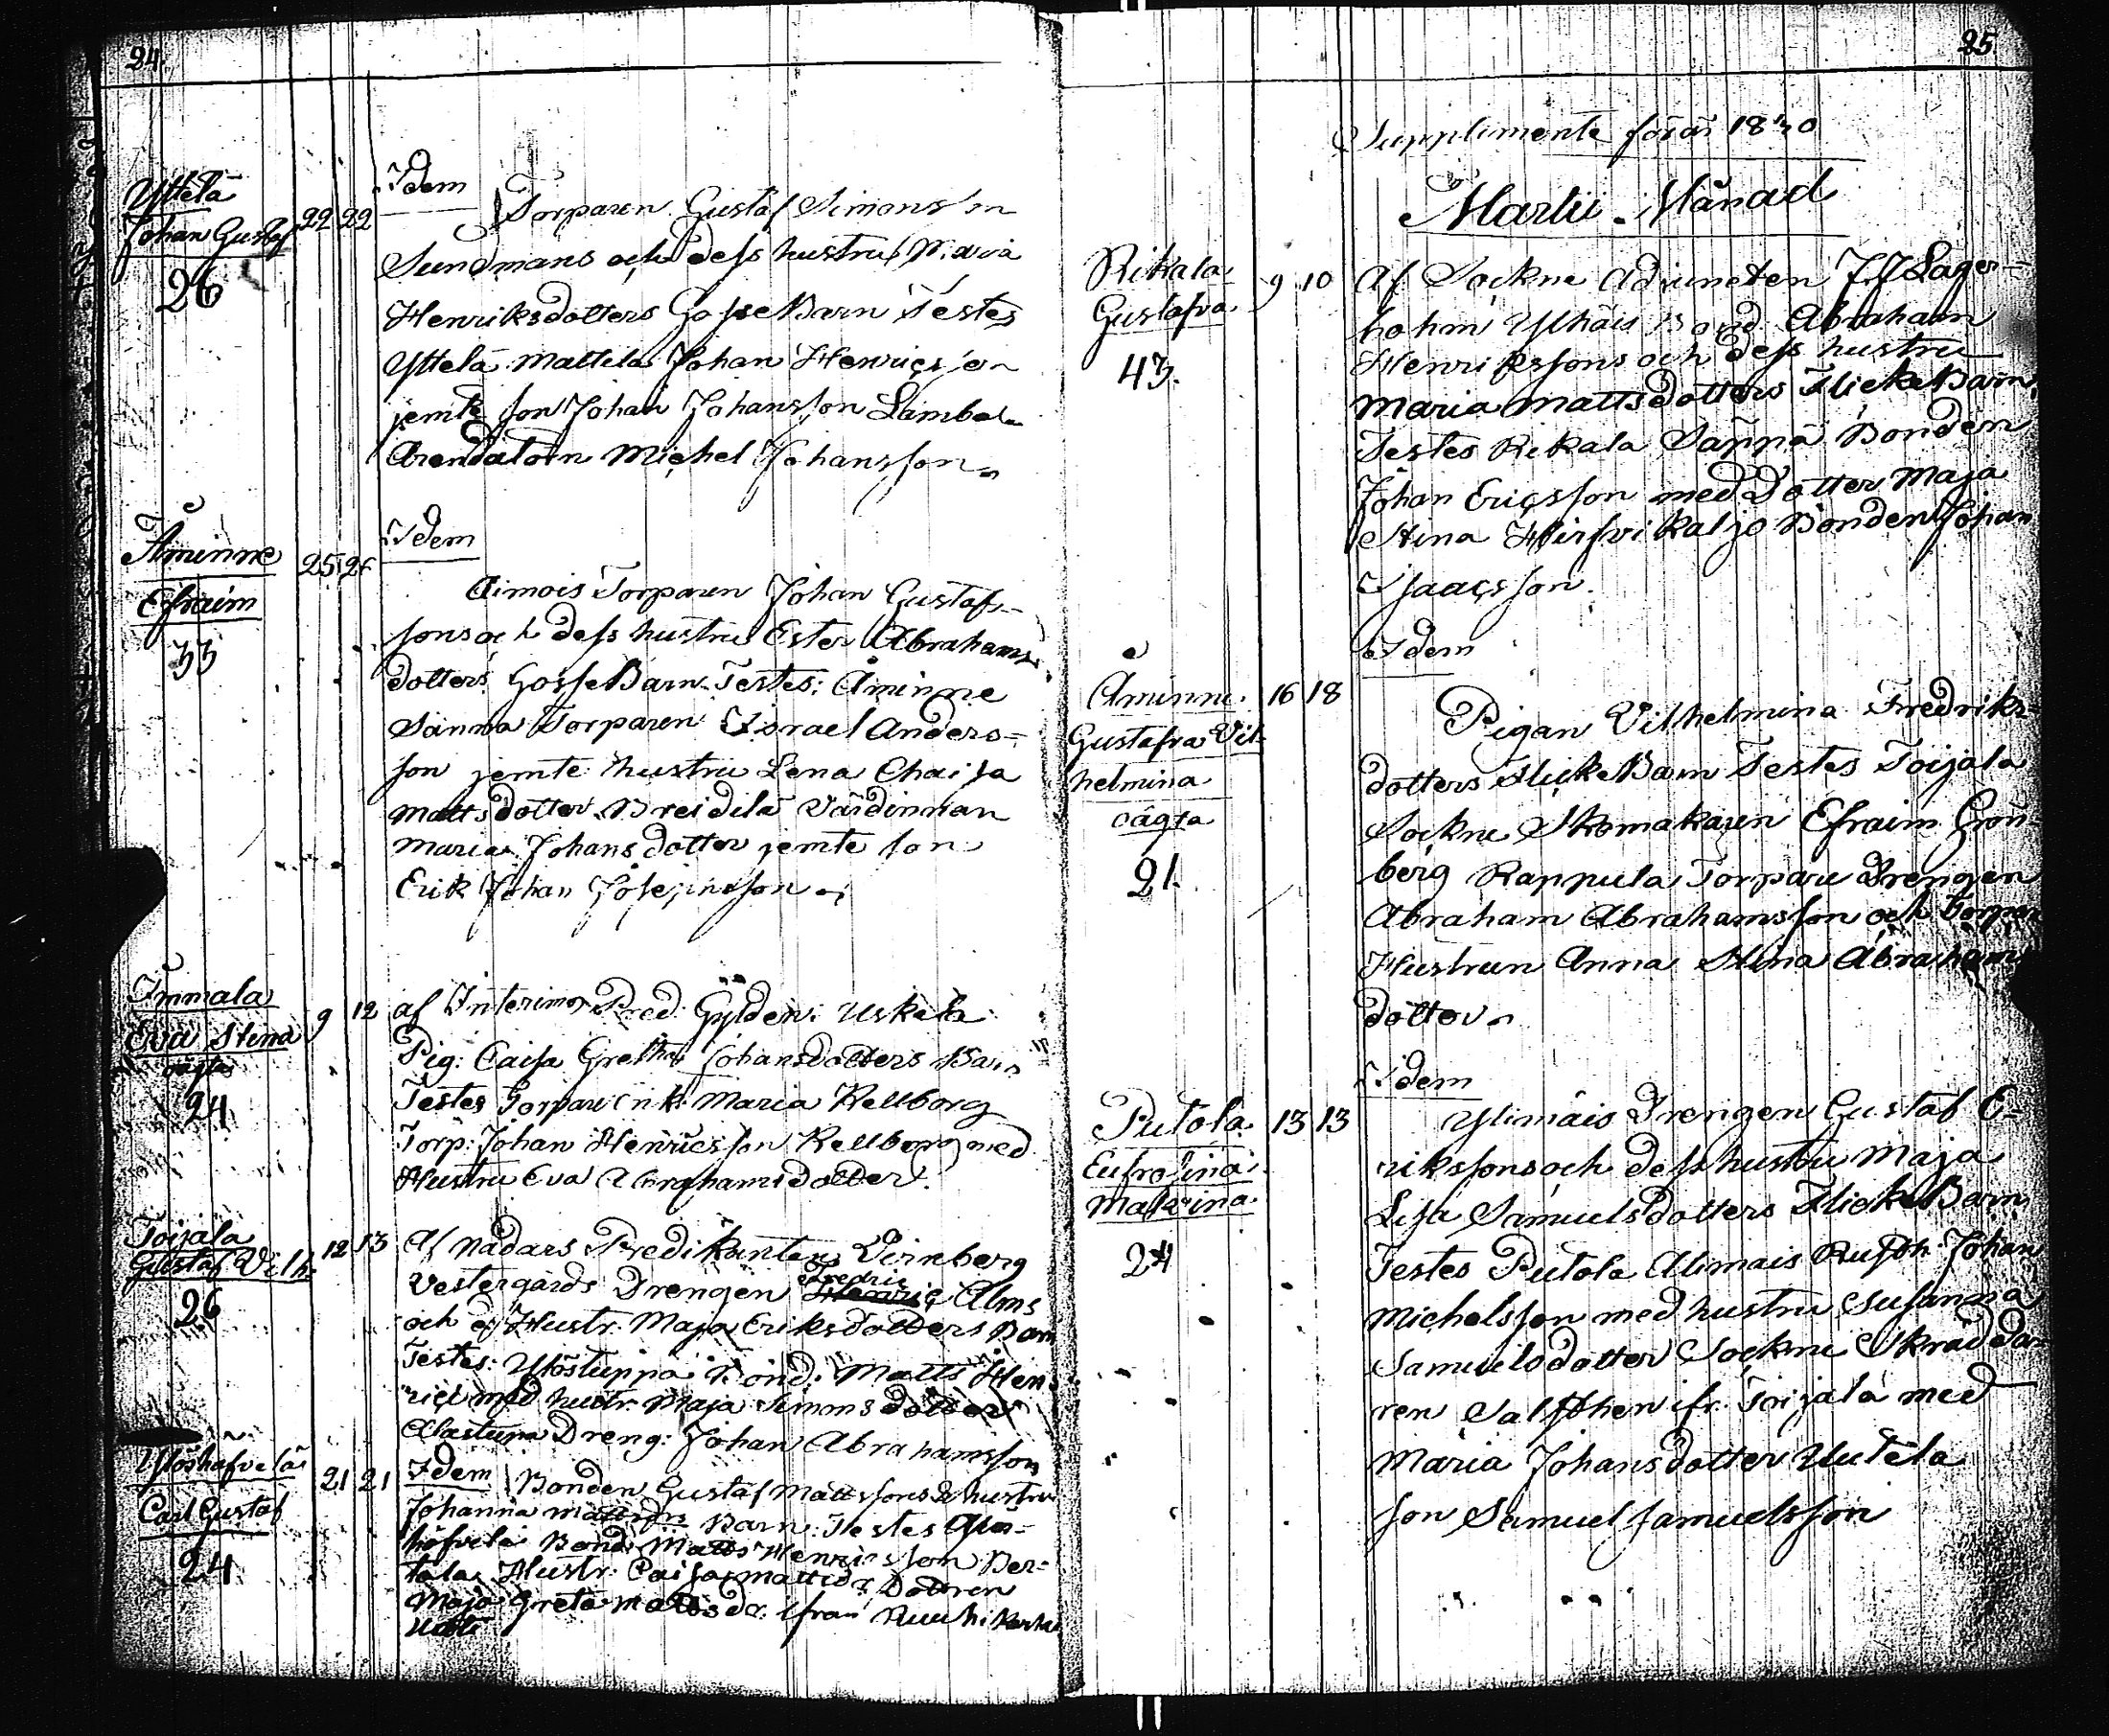 24.
Yttelä
Johan Gustaf 22 22
26
Idem
Torparen Gustaf Simonsson
Sundmans och dess hustru Maria
Henriksdotters GosseBarn Testes
Yttelä Mattila Johan Henricsson
jemte son Johan Johansson Lambala
Arendatorn Michel Johansson
Åminne 25 26
Efraim
33
Idem
Aimois Torparen Johan Gustafs-
sons och dess hustru Ester Abrahams
dotters GosseBarn Testes: Åminne
Torparen Israel Anders-
son jemte hustru Lena Chaisa
Mattsdotter Breidilä Värdinnan
Maria Johansdotter jemte son
Erik Johan Josephsson
Immala
Eva Stina 9 12
oägta
24
af Interims Pred: Gyldén: Uskela
Pig: Caisa Gretha Johansdotters Barn
Testes Torpare Enk: Maria Kellborg
Torp: Johan Henricsson Kellborg med
Hustru Eva Abrahamsdotter.
Toijala
Gustaf Vilh: 12 13
26
Af Nådårs Predikanten Virnberg
Vestergårds Drengen Fredric Alms
och d. Hustr. Maja Eriksdotters Barn
Testes: Bond. Matts Hen
rics med hustr. Maja Simonsdotter
Alastupa Dreng: Johan Abrahamsson
Ylöshafvelä 21 21
Carl Gustaf
24
Idem Bonden Gustaf Mattssons d. hustru
Johanna Mattsdrs Barn: Testes Ylös-
häfvelä Bond. Matts Henricsson Per-
tala Hustr. Caisa Mattsdr Dottren
Maja Greta Mattsdr. ifrån
25
Supplimente för år 1840
Martii Månad
Rikala 9 10
Gustafva
43.
Af Sockne Adjuncten J. J. Lager-
bohm Ylhäis Bond. Abraham
Henrikssons och dess hustru
Maria Mattsdotters FlickeBarn
Testes Rikala Säppä Bonden
Johan Ericsson med Dotter Maja
Stina Hirfvikaljo Bonden Johan
Isaacsson.
Åminne. 16 18
Gustafva Vil-
helmina
oägta
21.
Idem
Pigan Vilhelmina Fredriks-
dotters FlickeBarn Testes Toijala
Sockne Skomakaren Efraim Grön-
berg Rappula Torpare Drengen
Abraham Abrahamsson och Torpar
Hustrun Anna Stina Abrahams
dotter
Putola 13 13
Eufrosina
Malvina
24
Idem
Ylimäis Drengen Gustaf E-
rikssons och dess hustru Maja
Lisa Samuelsdotters FlickeBarn
Testes Putola Alimais Rusth. Johan
Michelsson med hustru Susanna
Samuelsdotter Sockne Skrädda-
ren ifr. Toijala med
Maria Johansdotter Uutela
son Samuel Samuelsson